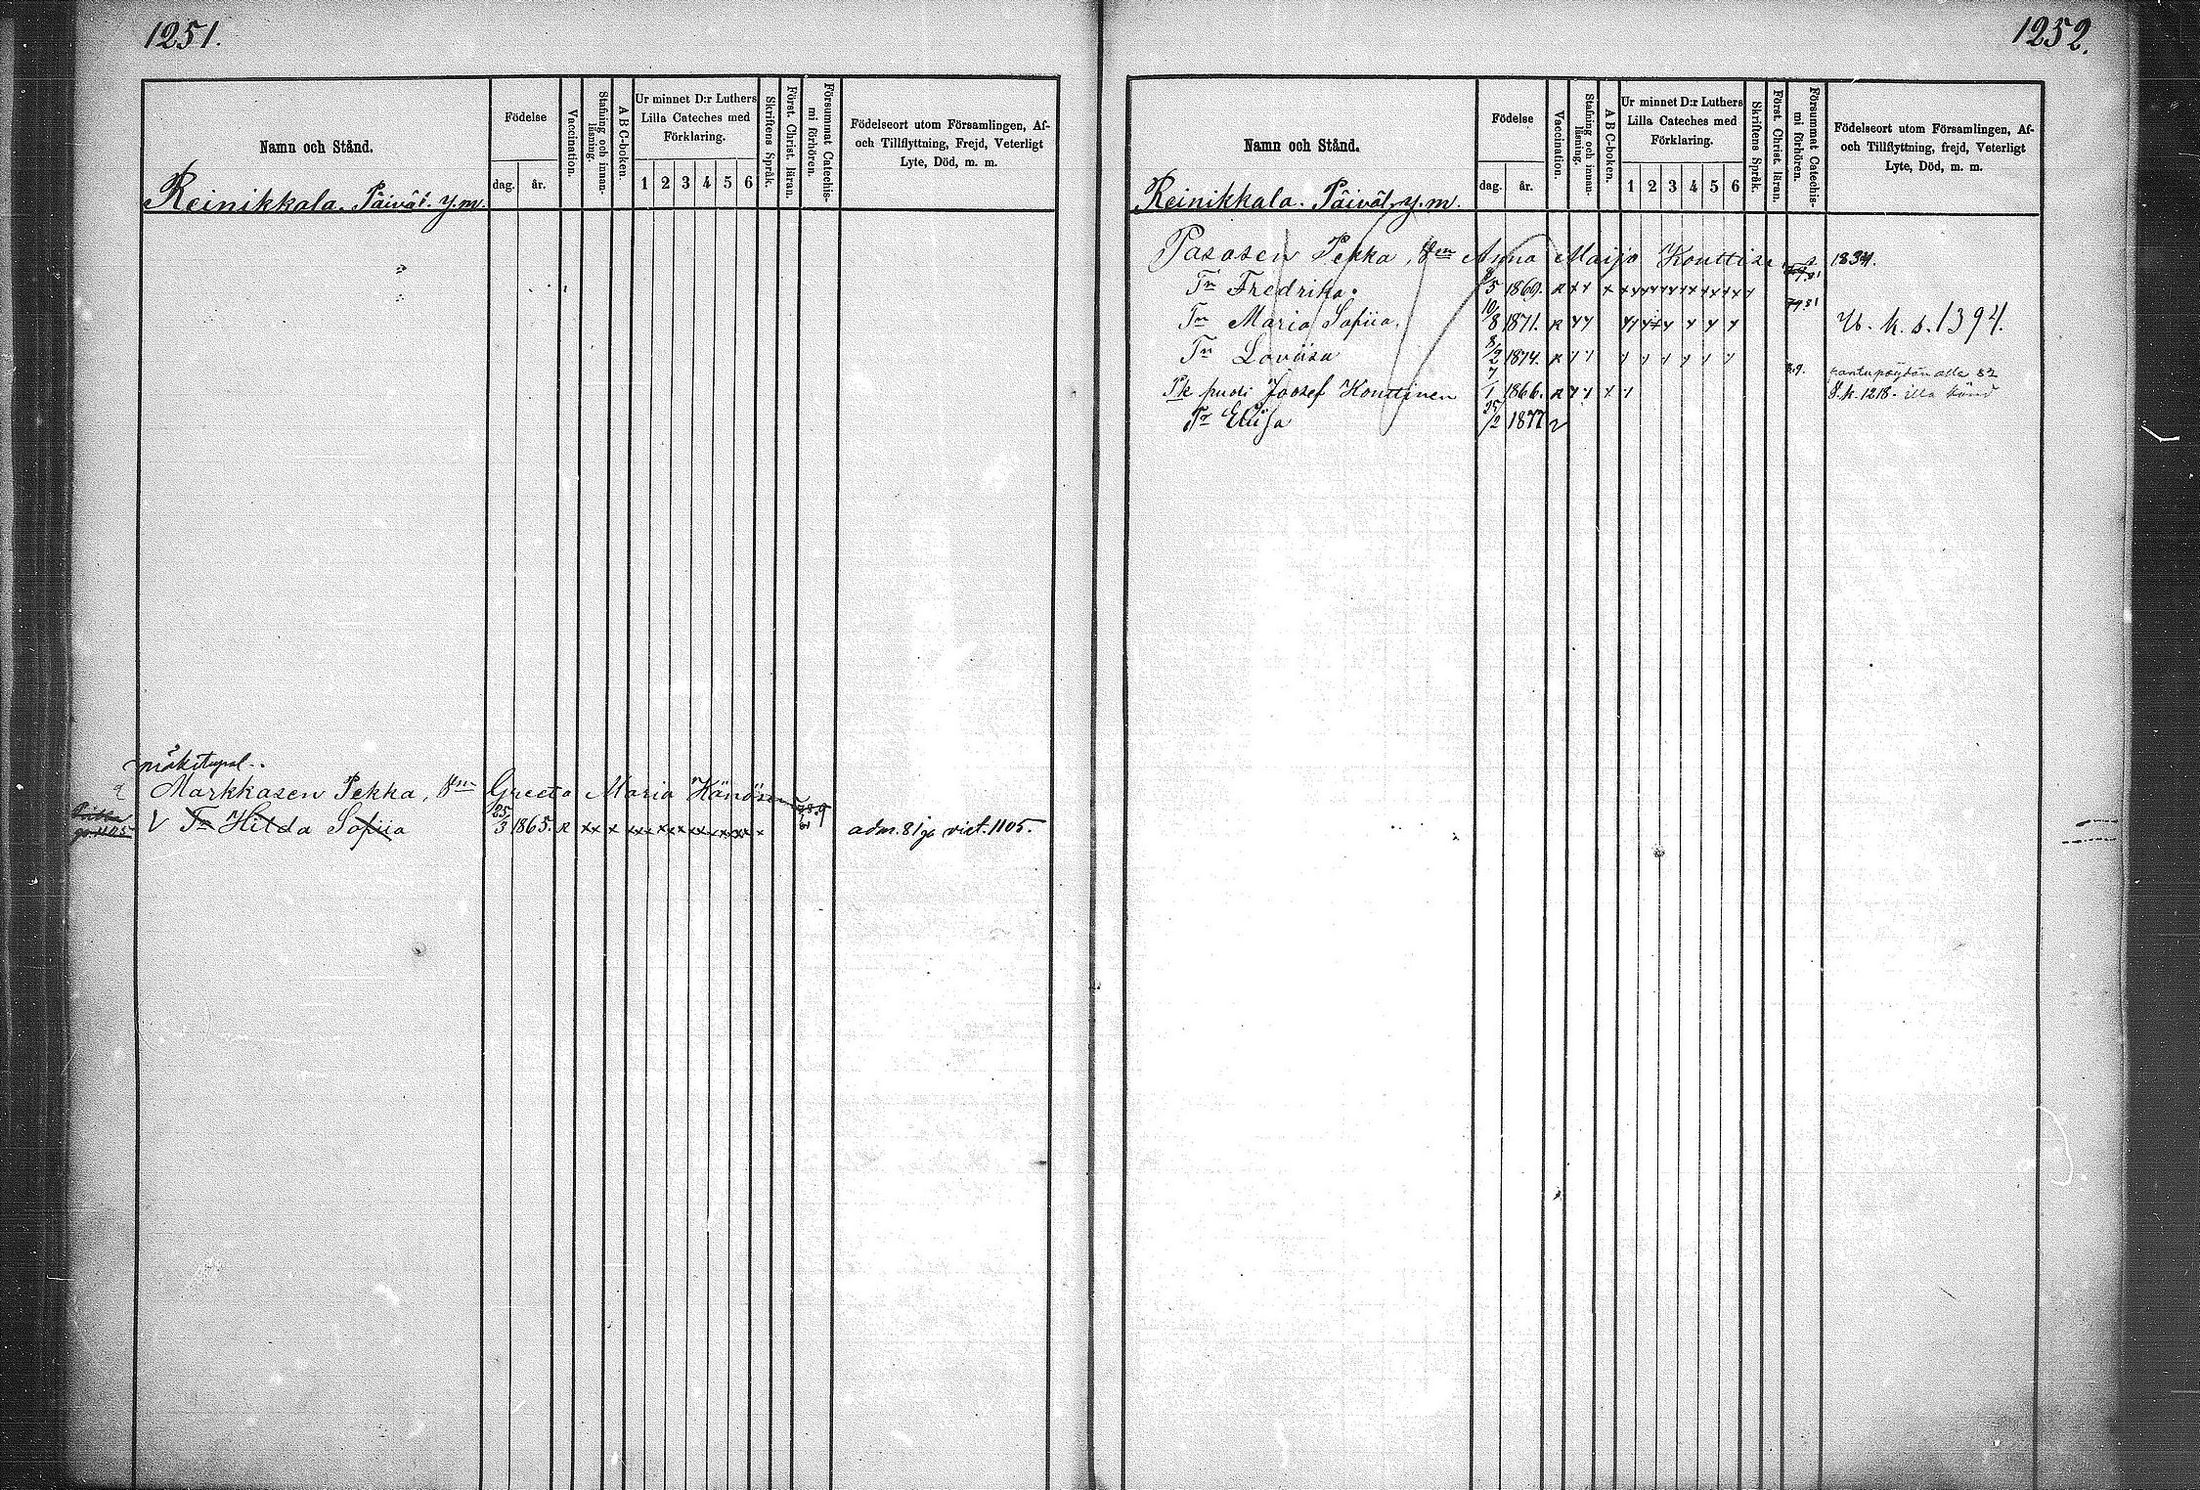 1251.
Namn och Stånd.
Födelse
dag.
år.
Vaccination.
Stafning och innan-
läsning.
A B C-boken.
Ur minnet D:r Luthers
Lilla Cateches med
Förklaring.
1 2 3 4 5 6
Skriftens Språk.
Först. Christ. läran.
Försummat Catechis-
mi förhören.
Födelseort utom Församlingen, Af-
och Tillflyttning, Frejd, Veterligt
Lyte, Död, m. m.
Reinikkala. Päivät. y.m.
mäkitupal..
Markkasen Pekka, Vm Greeta Maria Hänösen
V Tr Hilda Sofiia 25/3 1865. R xx x xxx x xx xx xxxxx x adm. 81 ja vict. 1105.
1252.
Namn och Stånd.
Födelse
dag.
år.
Vaccination.
Stafning och innan-
läsning.
A B C-boken.
Ur minnet D:r Luthers
Lilla Cateches med
Förklaring.
1 2 3 4 5 6
Skriftens Språk.
Först. Christ. läran.
Försummat Catechis-
mi förhören.
Födelseort utom Församlingen, Af-
och Tillflyttning, frejd, Veterligt
Lyte, Död, m. m.
Reinikkala. Päivät. y.m.
Pasasen Pekka, Vm Anna Maija Konttise 1834.
Tr Fredrika. 8/5 1869. R
Tr Maria Sofiia. 10/8 1871. R 79 81 U. k. s. 1394.
Tr Loviisa 8/2 1874. R
Pk puoli Joosef Konttinen 7/1 1866. R S. k. 1218. illa känd
Tr Eliisa 25/2 1877